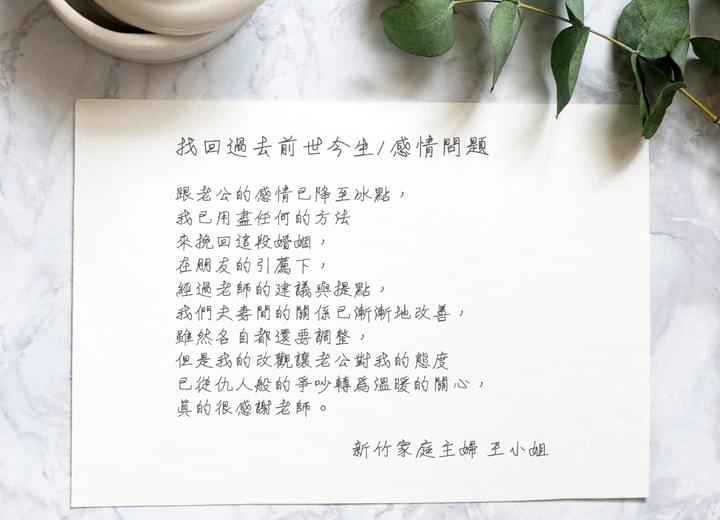 找回過去前世今生/感情問題
跟老公的感情已降至冰點，
我已用盡任何的方法
來挽回這段婚姻，
在朋友的引薦下，
經過老師的建議與提點，
我們夫妻間的關係已漸漸地改善，
雖然各自都還要調整，
但是我的改觀讓老公對我的態度
已從仇人般的爭吵轉為溫暖的關心，
真的很感謝老師。
新竹家庭主婦 王小姐